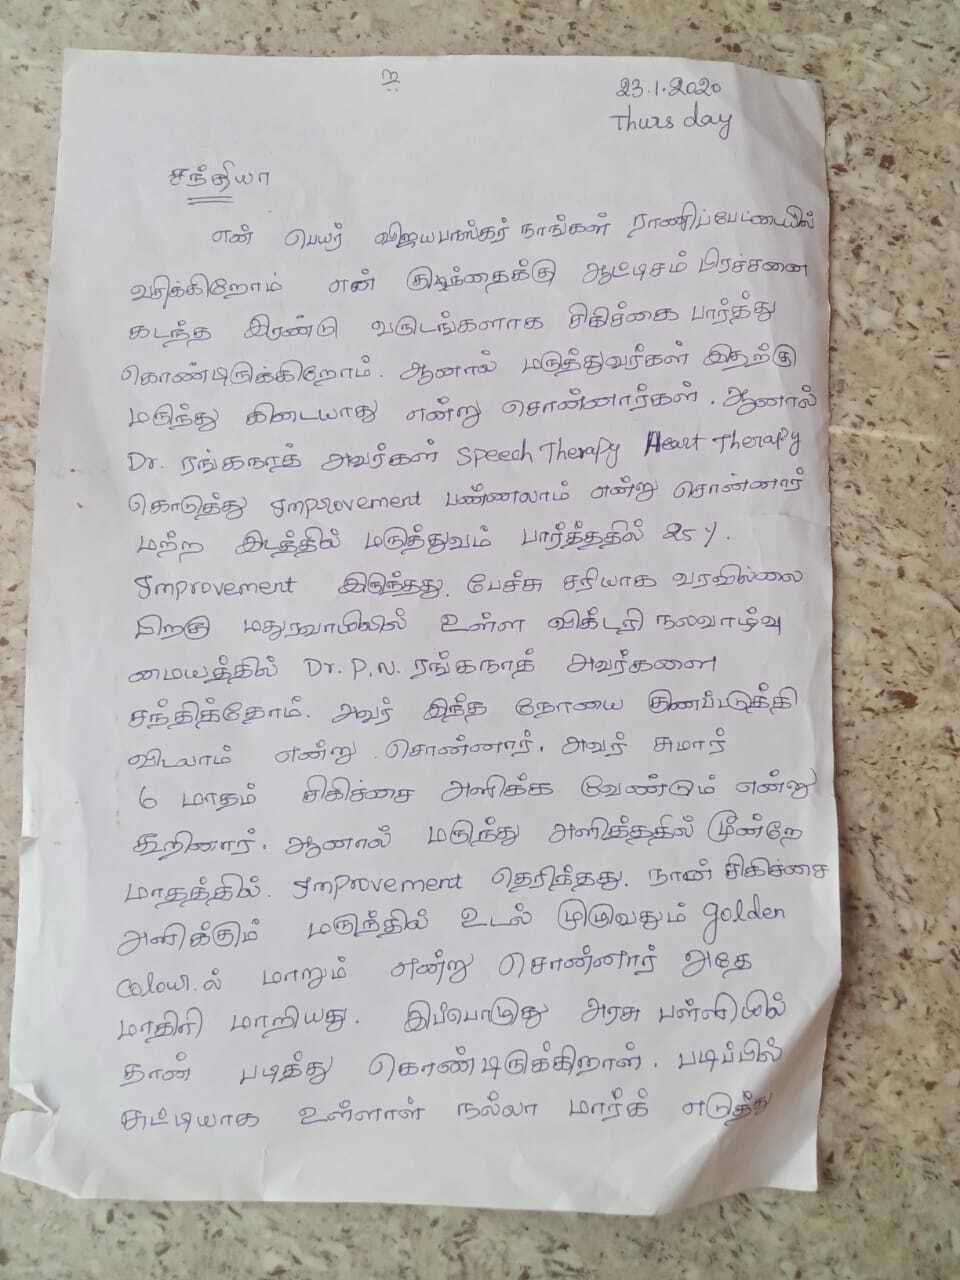 உ
23.1.2020
Thurs day
சந்தியா
என் பெயர் விஜயபாஸ்கர் நாங்கள் ராணிப்பேட்டையில்
வசிக்கிறோம் என் குழந்தைக்கு ஆட்டிசம் பிரச்சனை
கடந்த இரண்டு வருடங்களாக சிகிச்சை பார்த்து
கொண்டிருக்கிறோம். ஆனால் மருத்துவர்கள் இதற்கு
மருந்து கிடையாது என்று சொன்னார்கள். ஆனால்
Dr. ரங்கநாத் அவர்கள் Speech Therapy Heart Therapy
கொடுத்து Improvement பண்ணலாம் என்று சொன்னார்
மற்ற இடத்தில் மருத்துவம் பார்த்ததில் 25 %.
Improvement இருந்தது. பேச்சு சரியாக வரவில்லை
பிறகு மதுரவாயிலில் உள்ள விக்டரி நலவாழ்வு
மையத்தில் Dr. P.N. ரங்கநாத் அவர்களை
சந்தித்தோம். அவர் இந்த நோயை குணப்படுக்கி
விடலாம் என்று சொன்னார். அவர் சுமார்
6 மாதம் சிகிச்சை அளிக்க வேண்டும் என்று
கூறினார். ஆனால் மருந்து அளித்ததில் மூன்றே
மாதத்தில். Improvement தெரித்தது. நான் சிகிச்சை
அளிக்கும் மருந்தில் உடல் முழுவதும் golden
colour.ல் மாறும் என்று சொன்னார் அதே
மாதிரி மாறியது. இப்பொழுது அரசு பள்ளியில்
தான் படித்து கொண்டிருக்கிறாள். படிப்பில்
சுட்டியாக உள்ளாள் நல்லா மார்க் எடுத்து